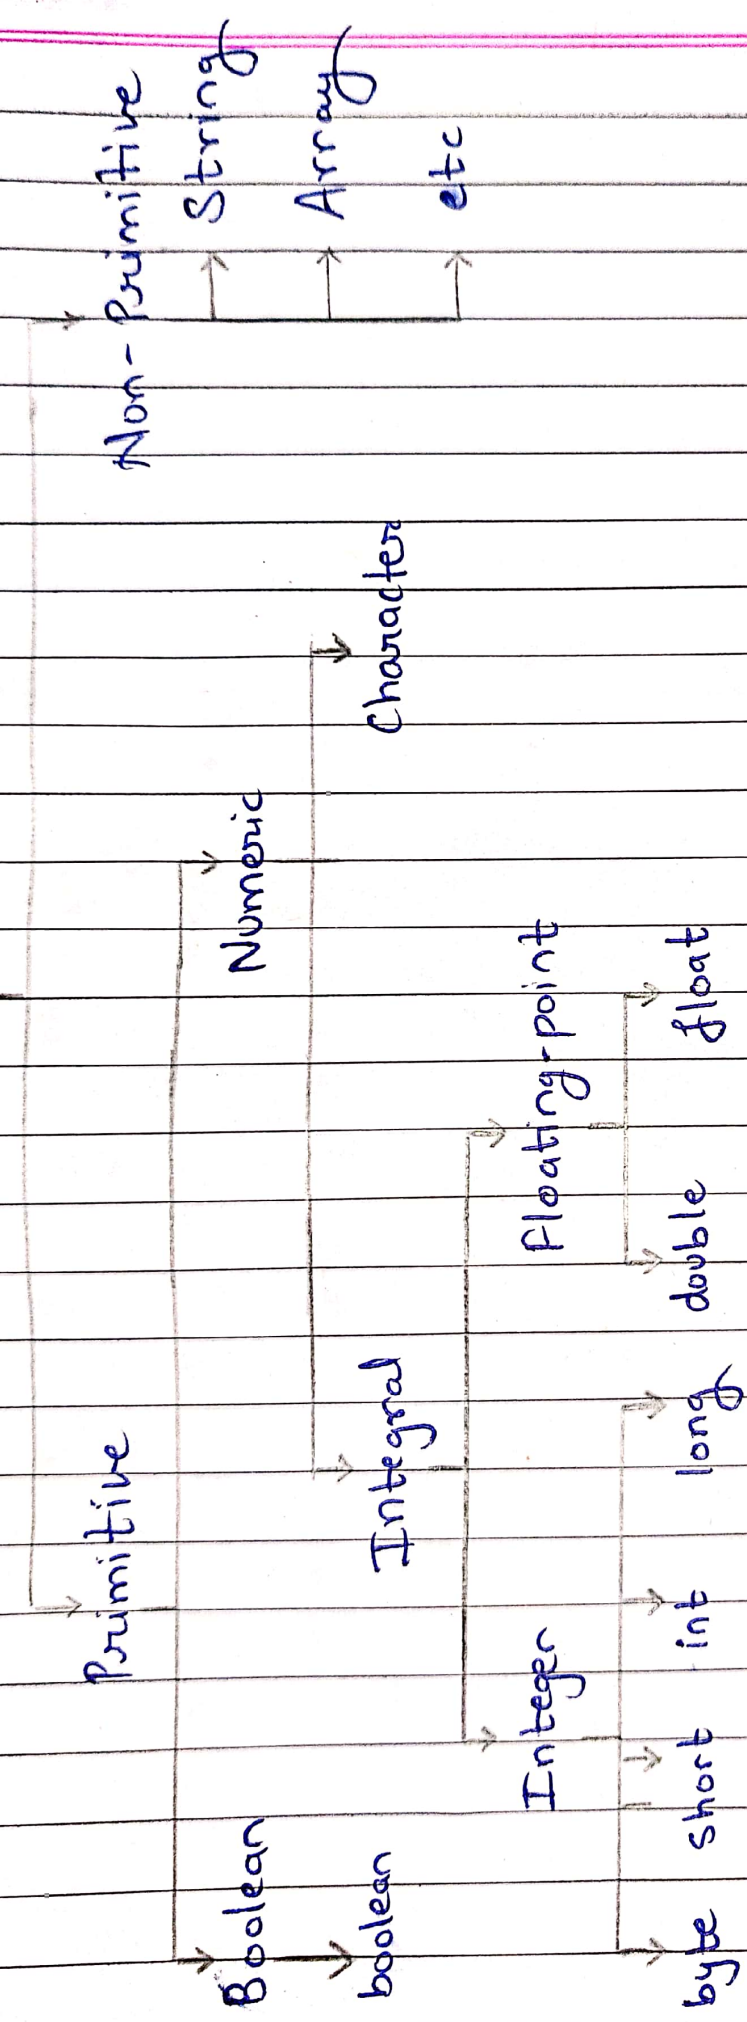 Primitive
Non-Primitive
Boolean
Numeric
String
boolean
Integral
Character
Array
Integer
Floating-point
etc
byte
short
int
long
double
float